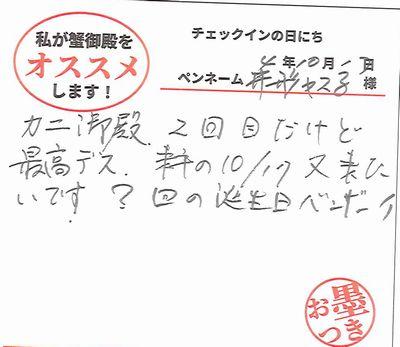 私が蟹御殿を
オススメ
します！
チェックインの日にち
年10月1日
ペンネーム 様
カニ御殿、2回目だけど
最高デス、 の10/17又来た
いです ? 回の誕生日バンザーイ
お墨つき